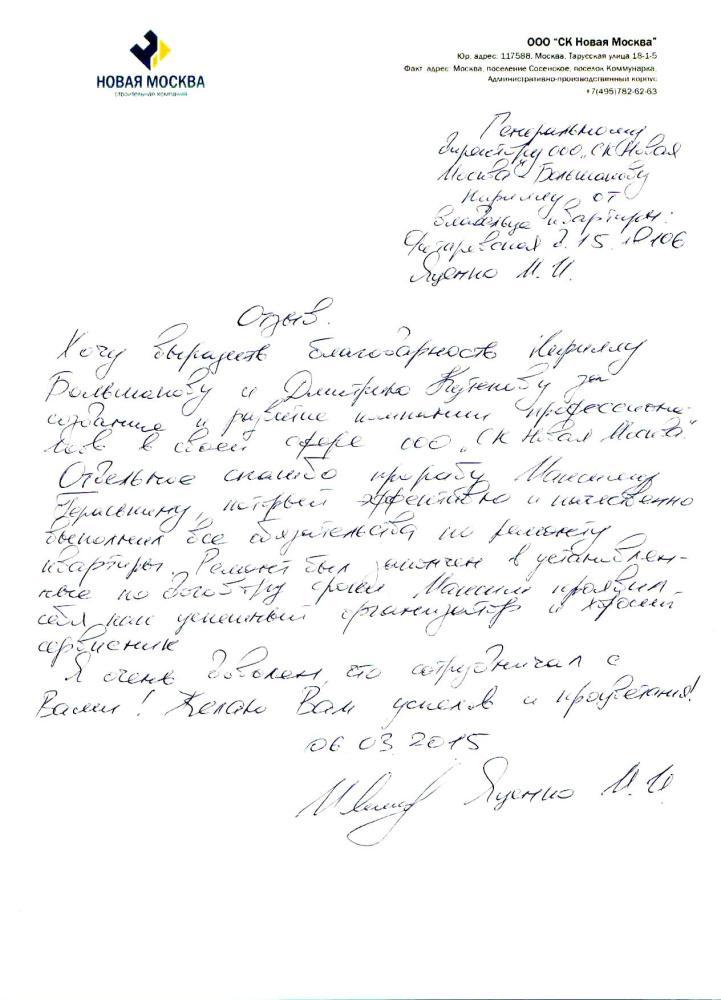 НОВАЯ МОСКВА
строительная компания
ООО "СК Новая Москва"
Юр. адрес: 117588, Москва, Тарусская улица 18-1-5
Факт. адрес: Москва, поселение Сосенское, поселок Коммунарка,
Административно-производственный корпус
+7(495)782-62-63
Генеральному
директору ООО „СК Новая
Москва" Большакову
Кириллу от
владельца квартиры:
д. 15 106
Яценко И. И.
Отзыв.
Хочу выразить благодарность Кириллу
Большакову и Дмитрию за
создание и развитие компании профессиона-
лов в своей сфере ООО „СК Новая Москва"
Отдельное спасибо прорабу Максиму
который эффективно и качественно
выполнил все обязательства по ремонту
квартиры. Ремонт был закончен в установлен-
ные по договору сроки Максим проявил
себя как успешный организатор и хороший
сервисник
Я очень доволен, что сотрудничал с
Вами! Желаю Вам успехов и процветания!
06 03 2015
Яценко И. И.